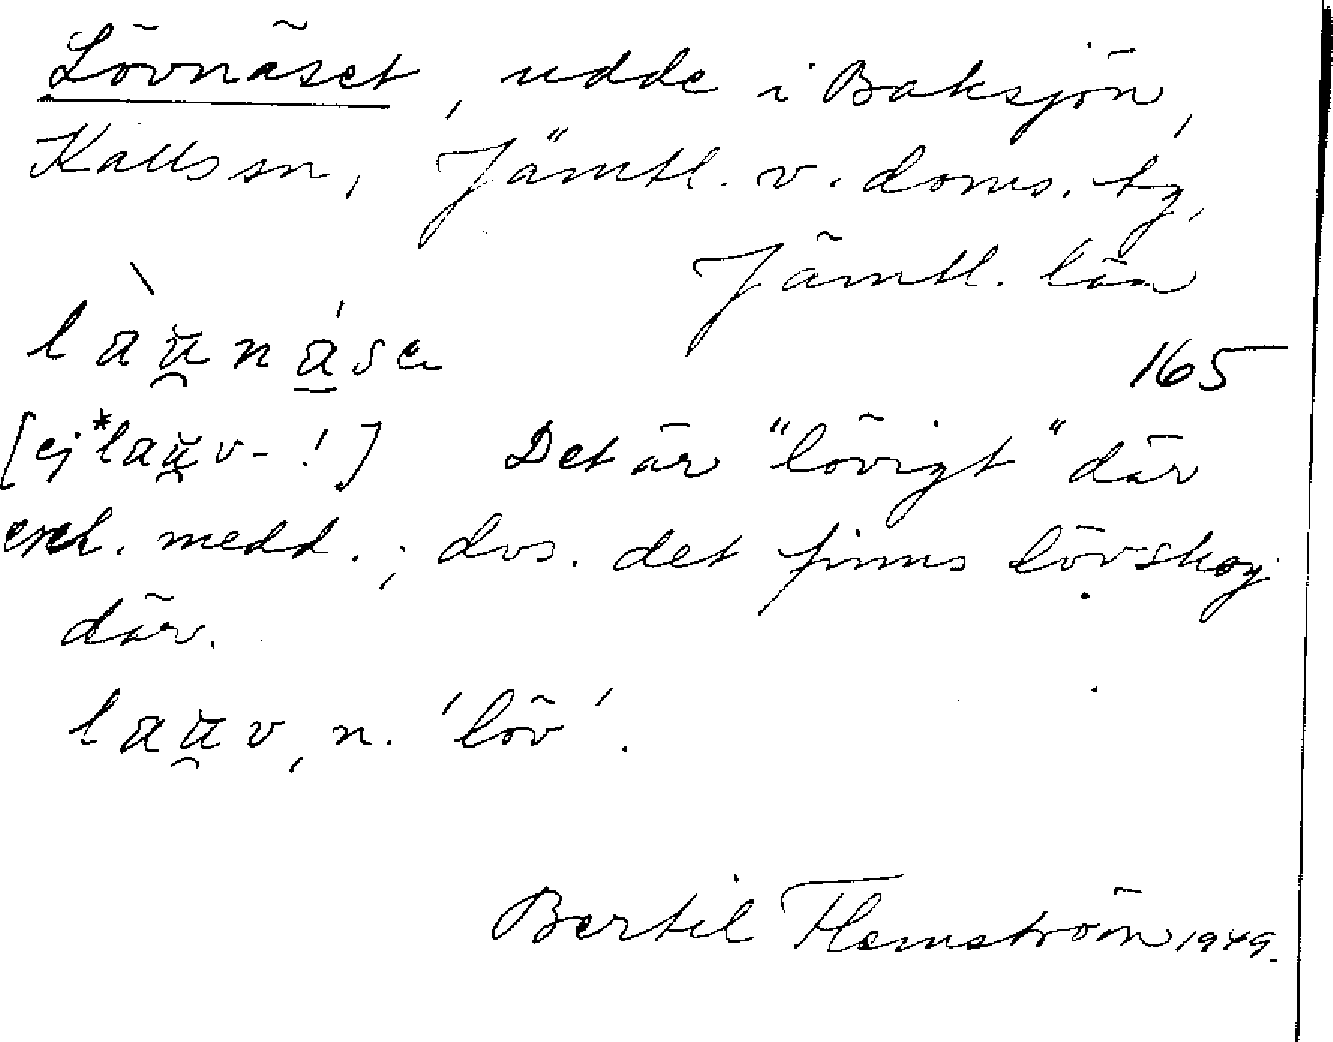 Lövnäset, udde i Baksjön,
Kalls sn, Jämtl. v. doms. tg,
Jämtl. län
165
[ej *laav- !] Det är "lövigt" där
enl. medd.; dvs. det finns lövskog
där.
laav, n. 'löv'.
Bertil Flemström 1949.